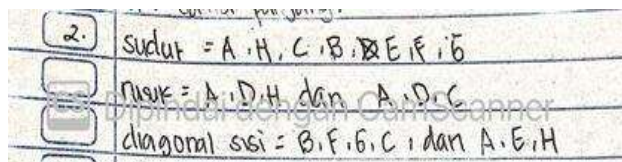 2. sudut = A, H, C, B, E, F, G
rusuk = A, D, H dan A, D, C
Dipindai dengan CamScanner
diagonal sisi = B, F, G, C, dan A, E, H